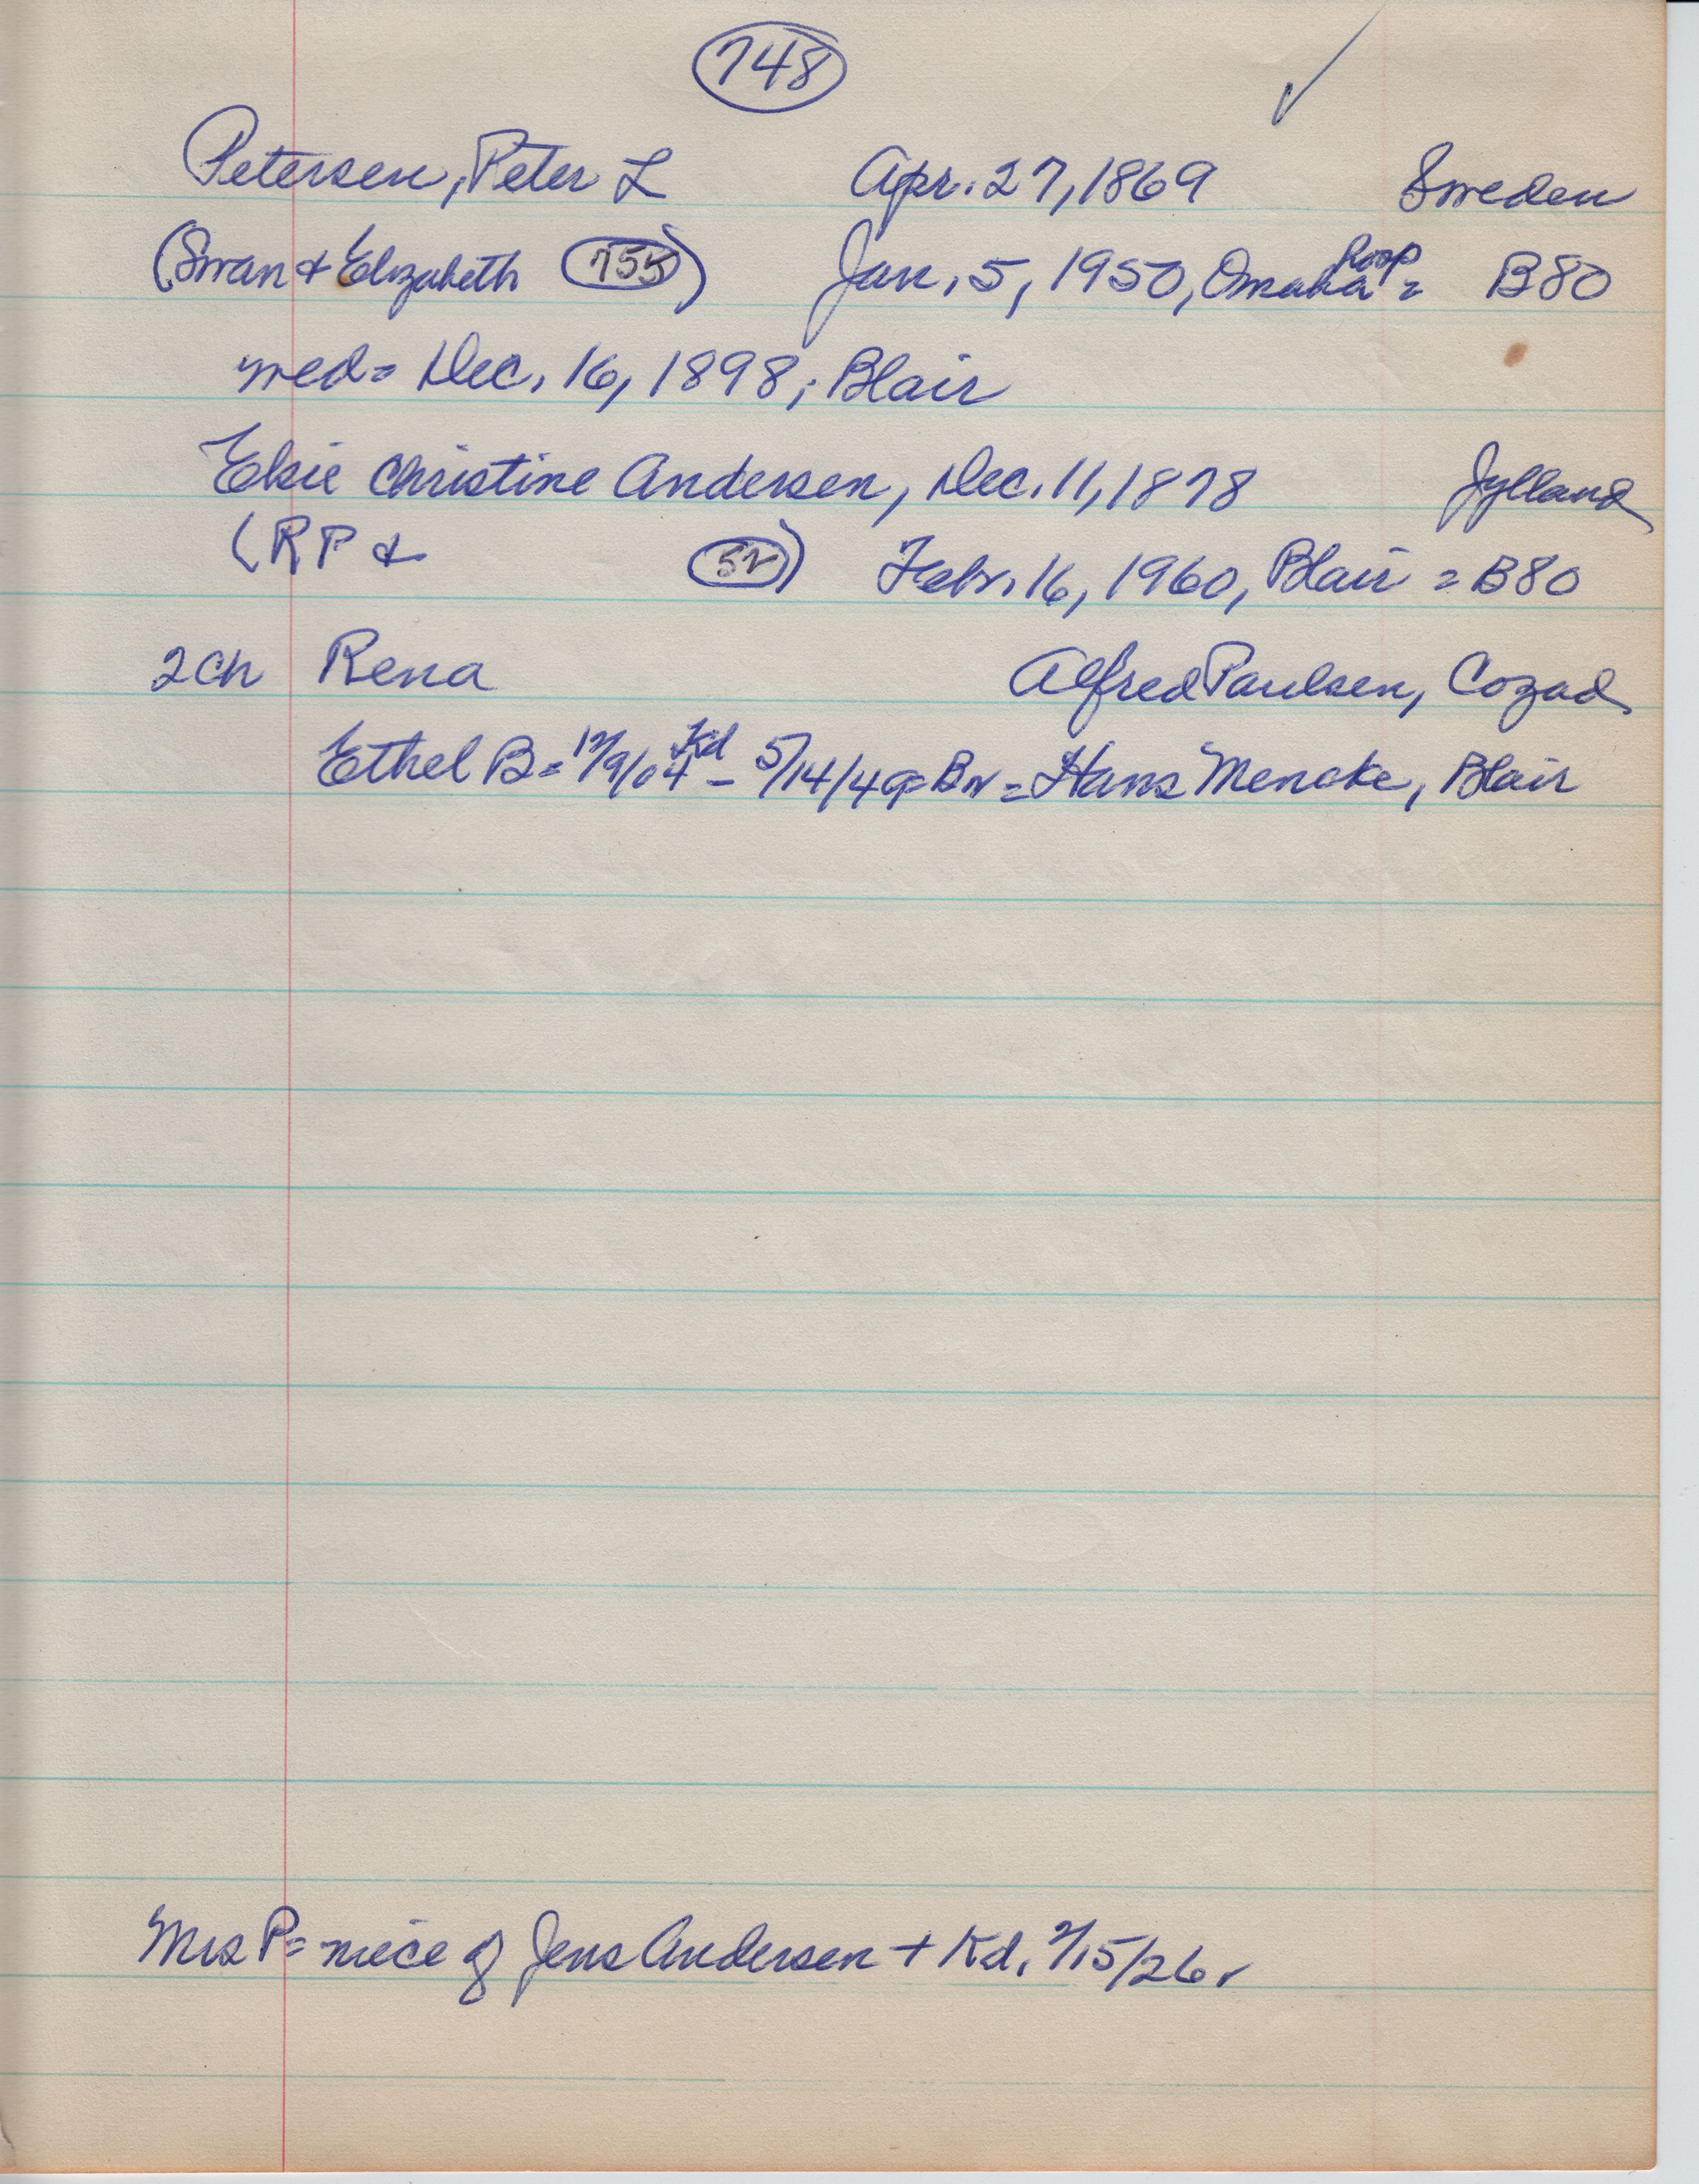 748 ✓
Petersen, Peter L Apr. 27, 1869 Sweden
(Swan & Elizabeth 755) Jan. 5, 1950, Omaha Hosp = B80
med = Dec. 16, 1898; Blair
Elsie Christine Andersen, Dec. 11, 1878 Jylland
(RP & 52) Febr. 16, 1960, Blair = B80
2 ch Rena Alfred Paulsen, Cozad
Ethel B = 12/9/04 Kd - 5/14/49 BN = Hans Mencke, Blair
Mrs P = niece of Jens Andersen + Kd. 2/15/26